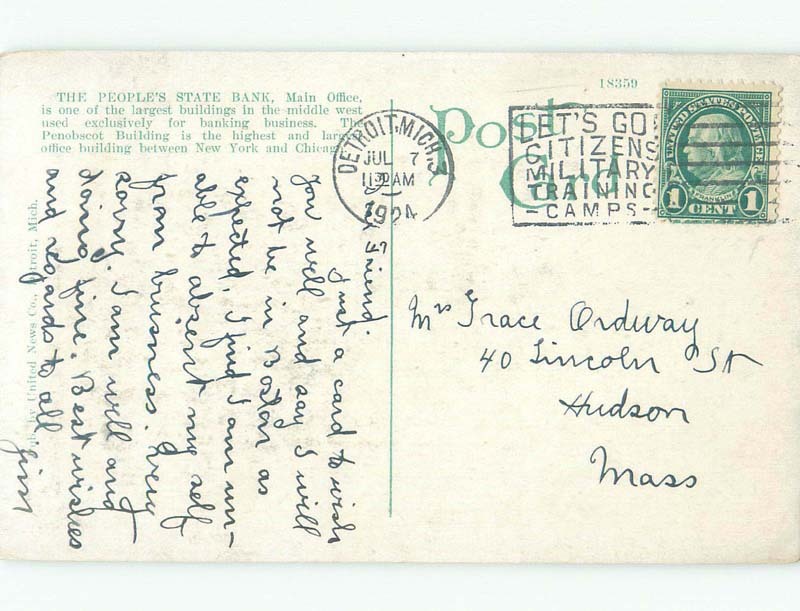 18359
THE PEOPLE'S STATE BANK, Main Office,
is one of the largest buildings in the middle west
used exclusively for banking business. The
Penobscot Building is the highest and largest
office building between New York and Chicago.
Post
Card
DETROIT, MICH. 3
JUL 7
AM
1924
LET'S GO!
CITIZENS
MILITARY
TRAINING
-CAMPS-
UNITED STATES POSTAGE
FRANKLIN
1 CENT 1
Friend.
Just a card to wish
you well and say I will
not be in Boston as
expected. I find I am un-
able to absent my self
from business. Very
sorry. I am well and
doing fine. Best wishes
and regards to all
Mrs Grace Ordway
40 Lincoln St
Hudson
Mass
by United News Co., Detroit, Mich.